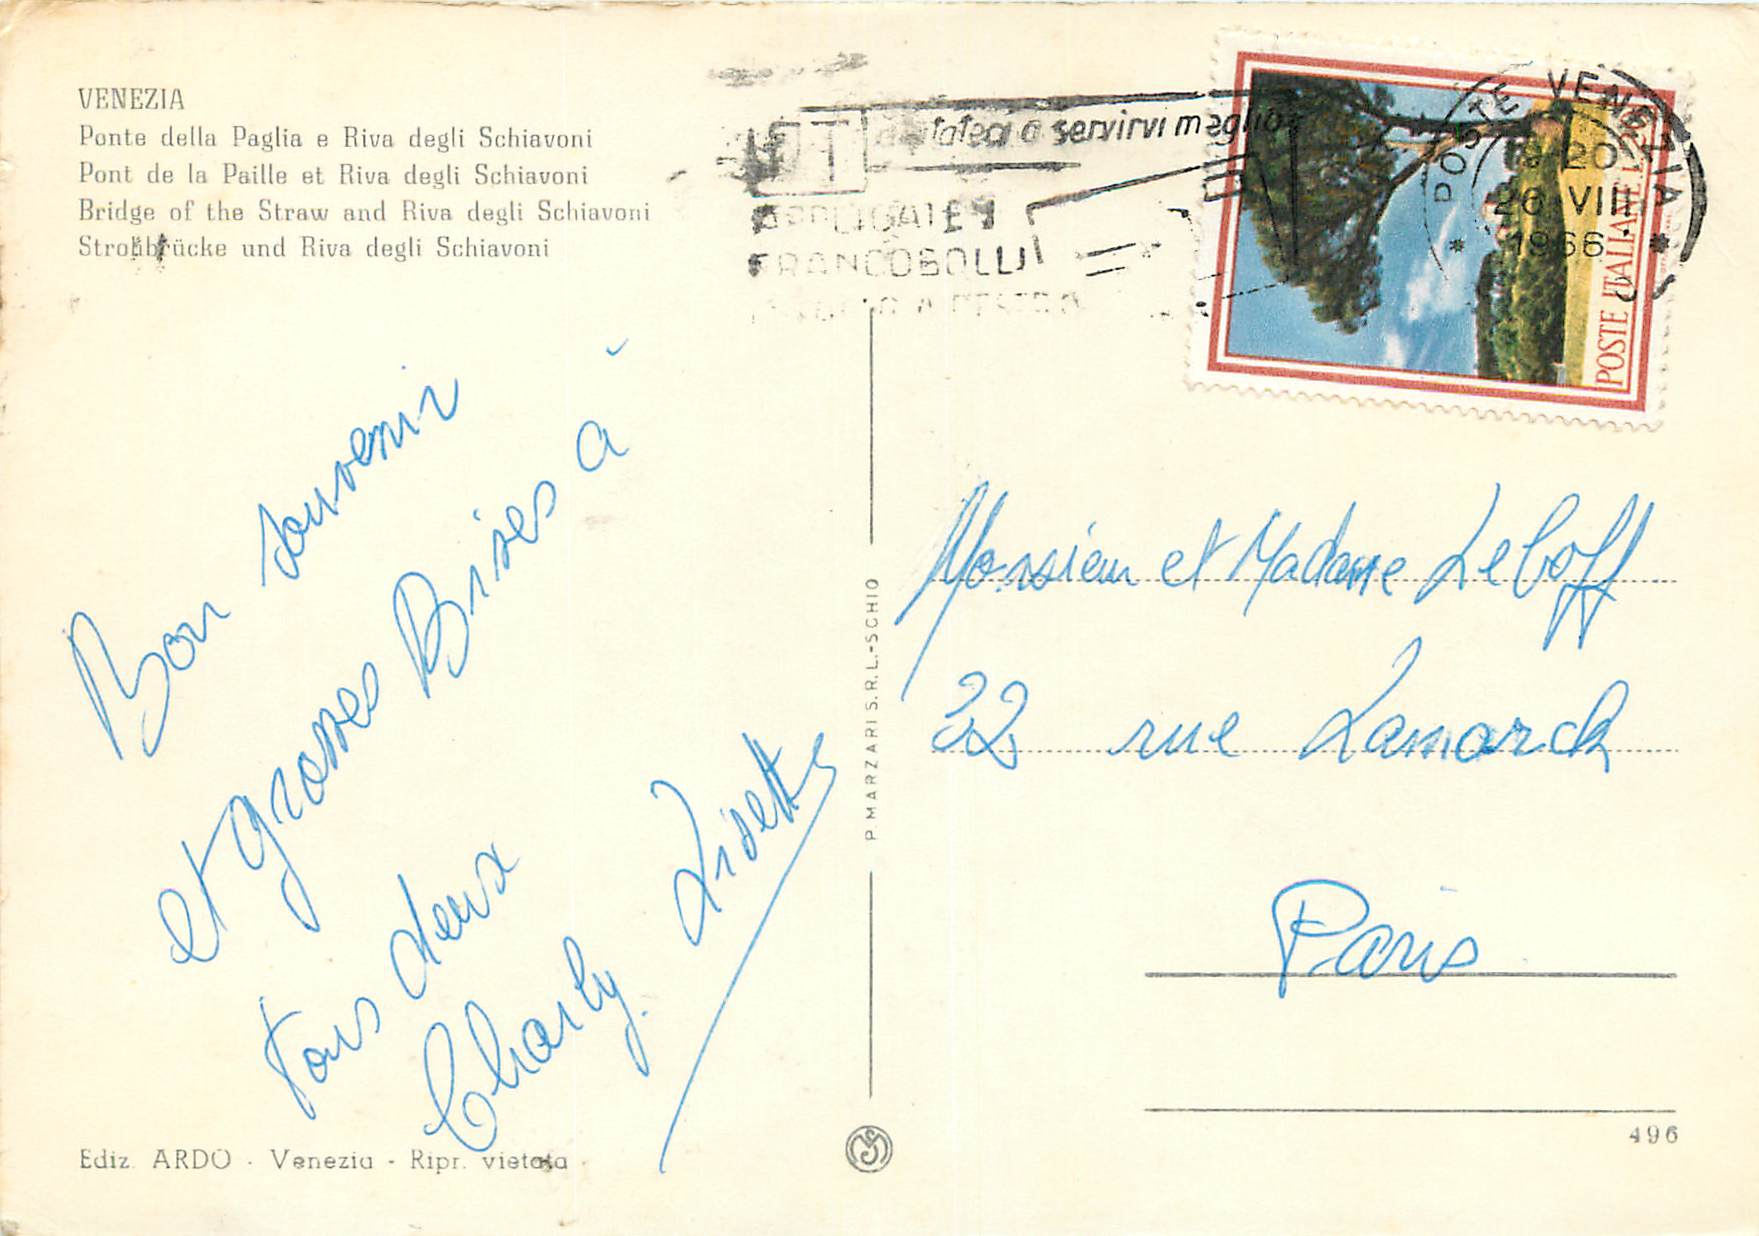 VENEZIA
Ponte della Paglia e Riva degli Schiavoni
Pont de la Paille et Riva degli Schiavoni
Bridge of the Straw and Riva degli Schiavoni
Strohbrücke und Riva degli Schiavoni
a servirvi meglio
APPLICATE I
FRANCOBOLLI
POSTE VENEZIA
20
26 VIII
1966
POSTE ITALIANE
Bon souvenir
et grosses Bises à
tous deux
Charly. Lisette
P. MARZARI S.R.L.-SCHIO
Monsieur et Madame Leboff
22 rue Lamarck
Paris
496
Ediz. ARDO - Venezia - Ripr. vietata